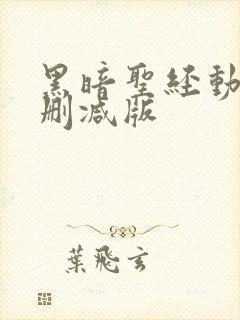 黑暗聖経動
刪減版
葉飛玄